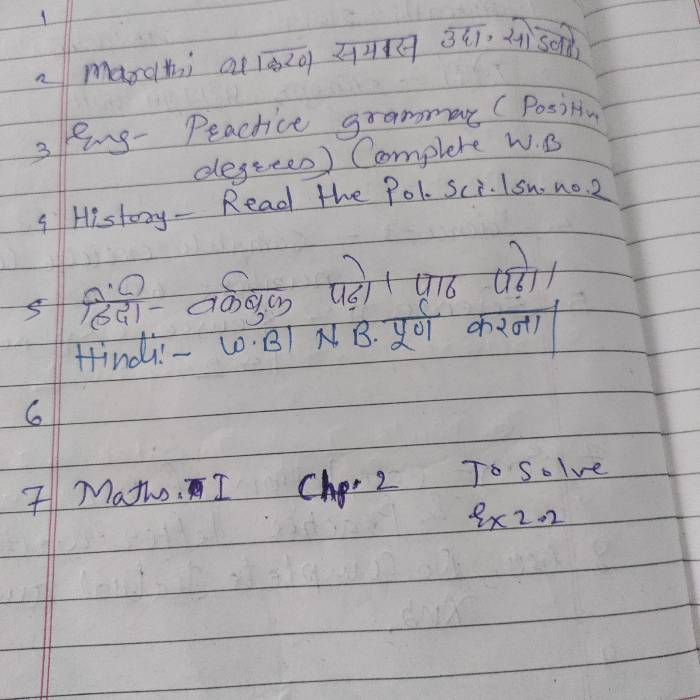 1
2 Marathi व्याकरण समास उदा. सोडवणे
3 Eng- Practice grammar (Positive
degrees) Complete W.B
4 History- Read the Pol. Sci. lsn. no. 2
5 हिंदी- वर्कबुक पढ़ो। पाठ पढ़ो।
Hindi:- W.B। N.B. पूर्ण करना।
6
7 Maths. I Chp. 2 To Solve
Ex 2.2